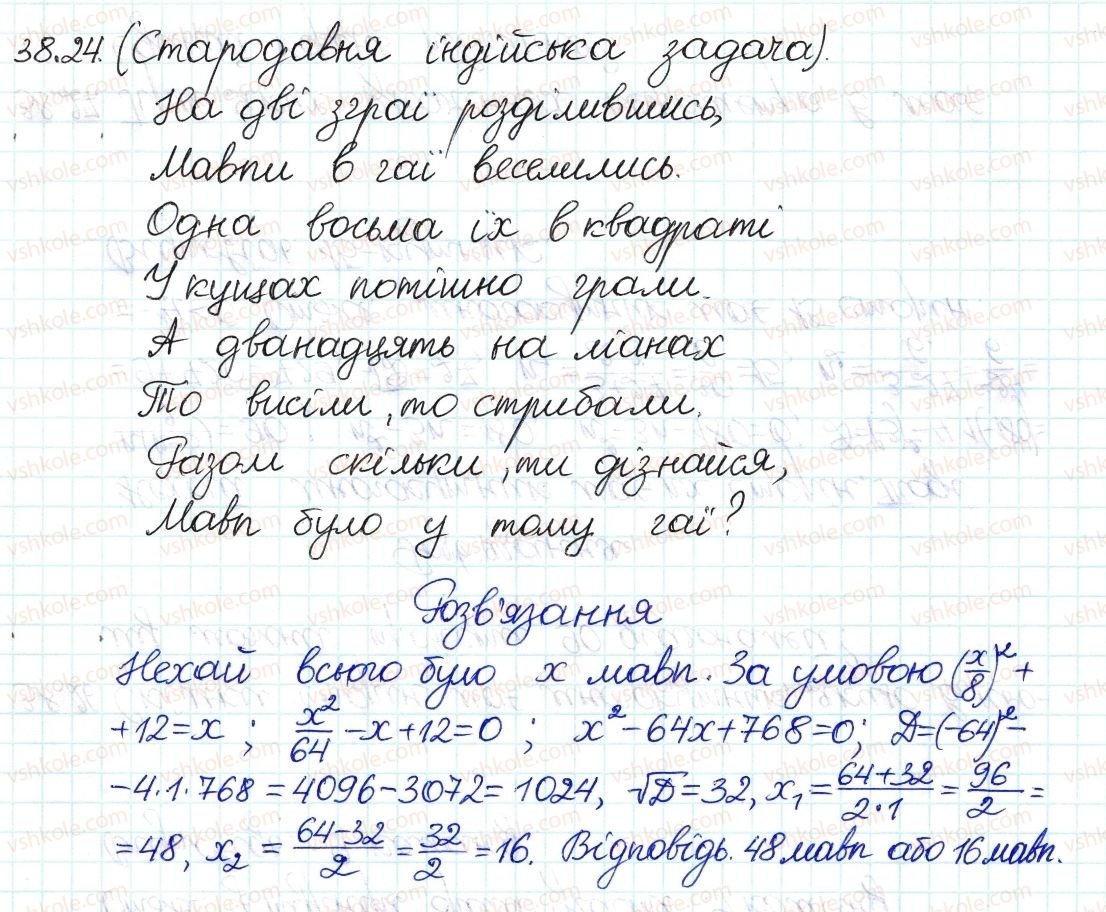 38.24. (Стародавня індійська задача).
На дві зграї розділившись,
Мавпи в гаї веселились.
Одна восьма їх в квадраті
У кущах потішно грали.
А дванадцять на ліанах
То висіли, то стрибали.
Разом скільки, ти дізнайся,
Мавп було у тому гаї?
Розв'язання
Нехай всього було x мавп. За умовою (x/8)² +
+12=x ; x²/64 -x+12=0 ; x²-64x+768=0; D=(-64)²-
-4·1·768=4096-3072=1024, √D=32, x₁=(64+32)/(2·1)=96/2=
=48, x₂=(64-32)/2=32/2=16. Відповідь. 48 мавп або 16 мавп.